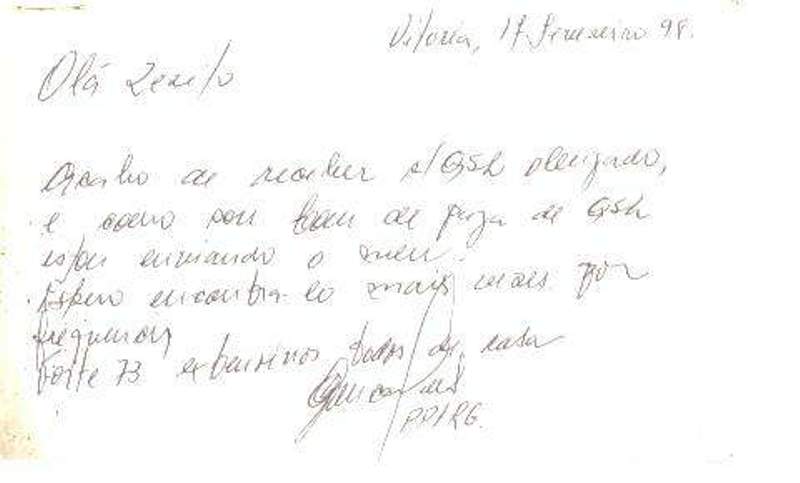 Vitoria, 17 Fevereiro 98.
Olá Zezito
Acabo de receber s/ QSL obrigado,
e como sou bom de praza de QSL
estou enviando o meu.
Espero encontra-lo mais vezes por
frequencia
Forte 73 extensivos todos da casa
PP1RG.